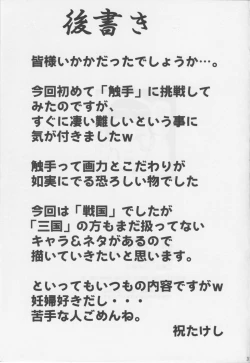 後書き
皆様いかかだったでしょうか…。
今回初めて「触手」に挑戦して
みたのですが、
すぐに凄い難しいという事に
気が付きましたw
触手って画力とこだわりが
如実にでる恐ろしい物でした
今回は「戦国」でしたが
「三国」の方もまだ扱ってない
キャラ&ネタがあるので
描いていきたいと思います。
といってもいつもの内容ですがw
妊婦好きだし・・・
苦手な人ごめんね。
祝たけし